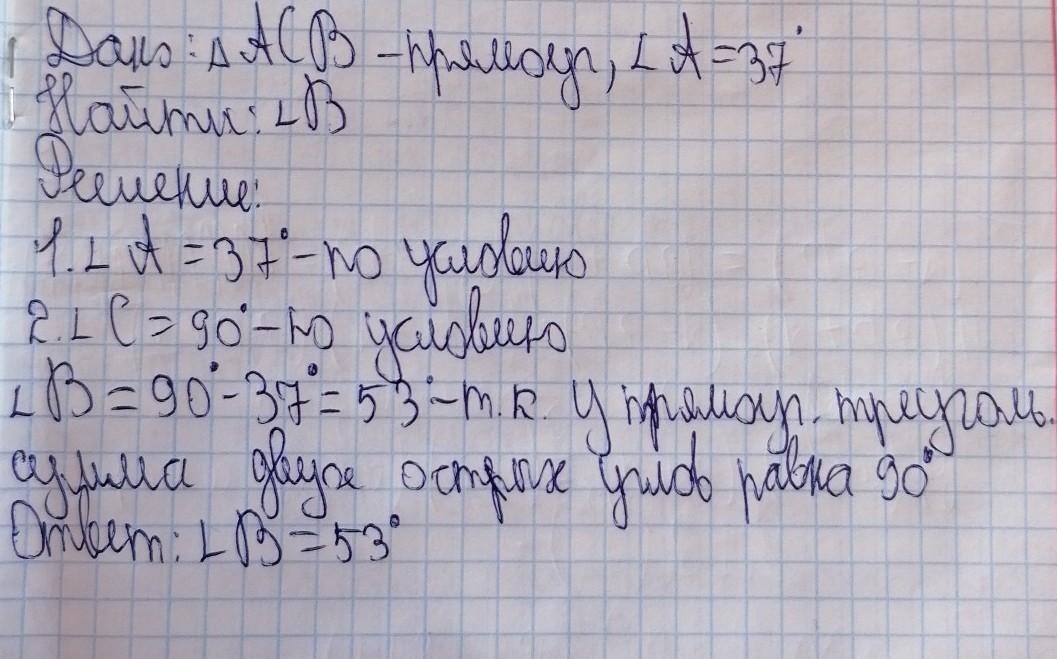 Дано: △ АСВ - прямоуг, ∠ А = 37°
Найти: ∠В
Решение:
1. ∠ А = 37° - по условию
2. ∠ С = 90° - по условию
∠ В = 90° - 37° = 53° - т.к. у прямоуг. треуголь.
сумма двух острых углов равна 90°
Ответ: ∠В = 53°